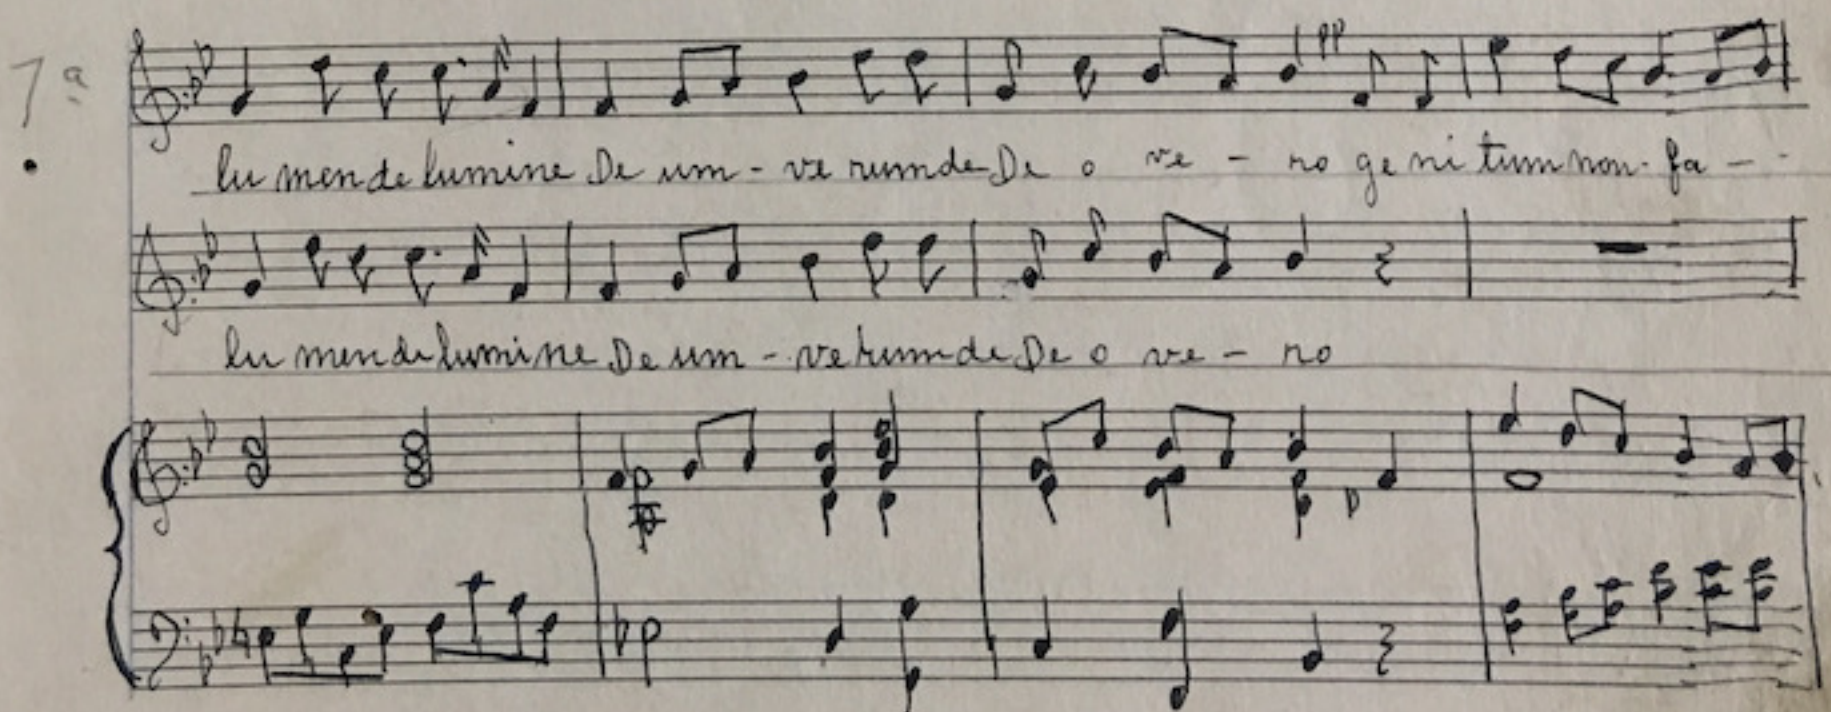 7ª
pp
lu men de lumine De um - ve rum de De o ve - ro ge ni tum non - fa - -
lu men de lumine De um - ve rum de De o ve - ro